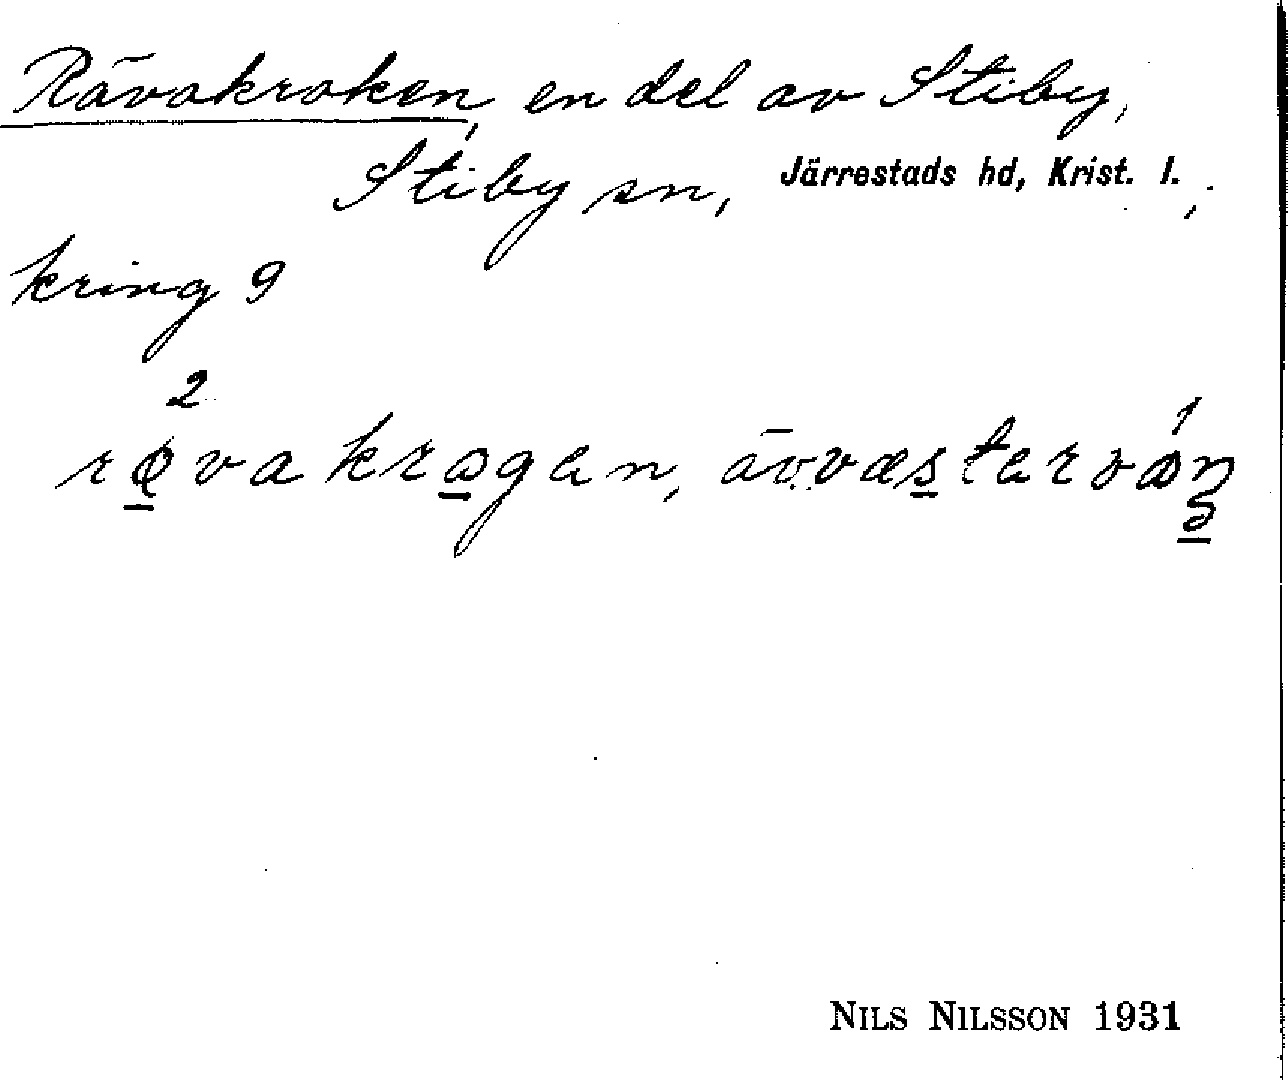 Rävakroken, en del av Stiby,
Stiby sn, Järrestads hd, Krist. l.,
kring 9
2
røva krɔgen,
1
NILS NILSSON 1931